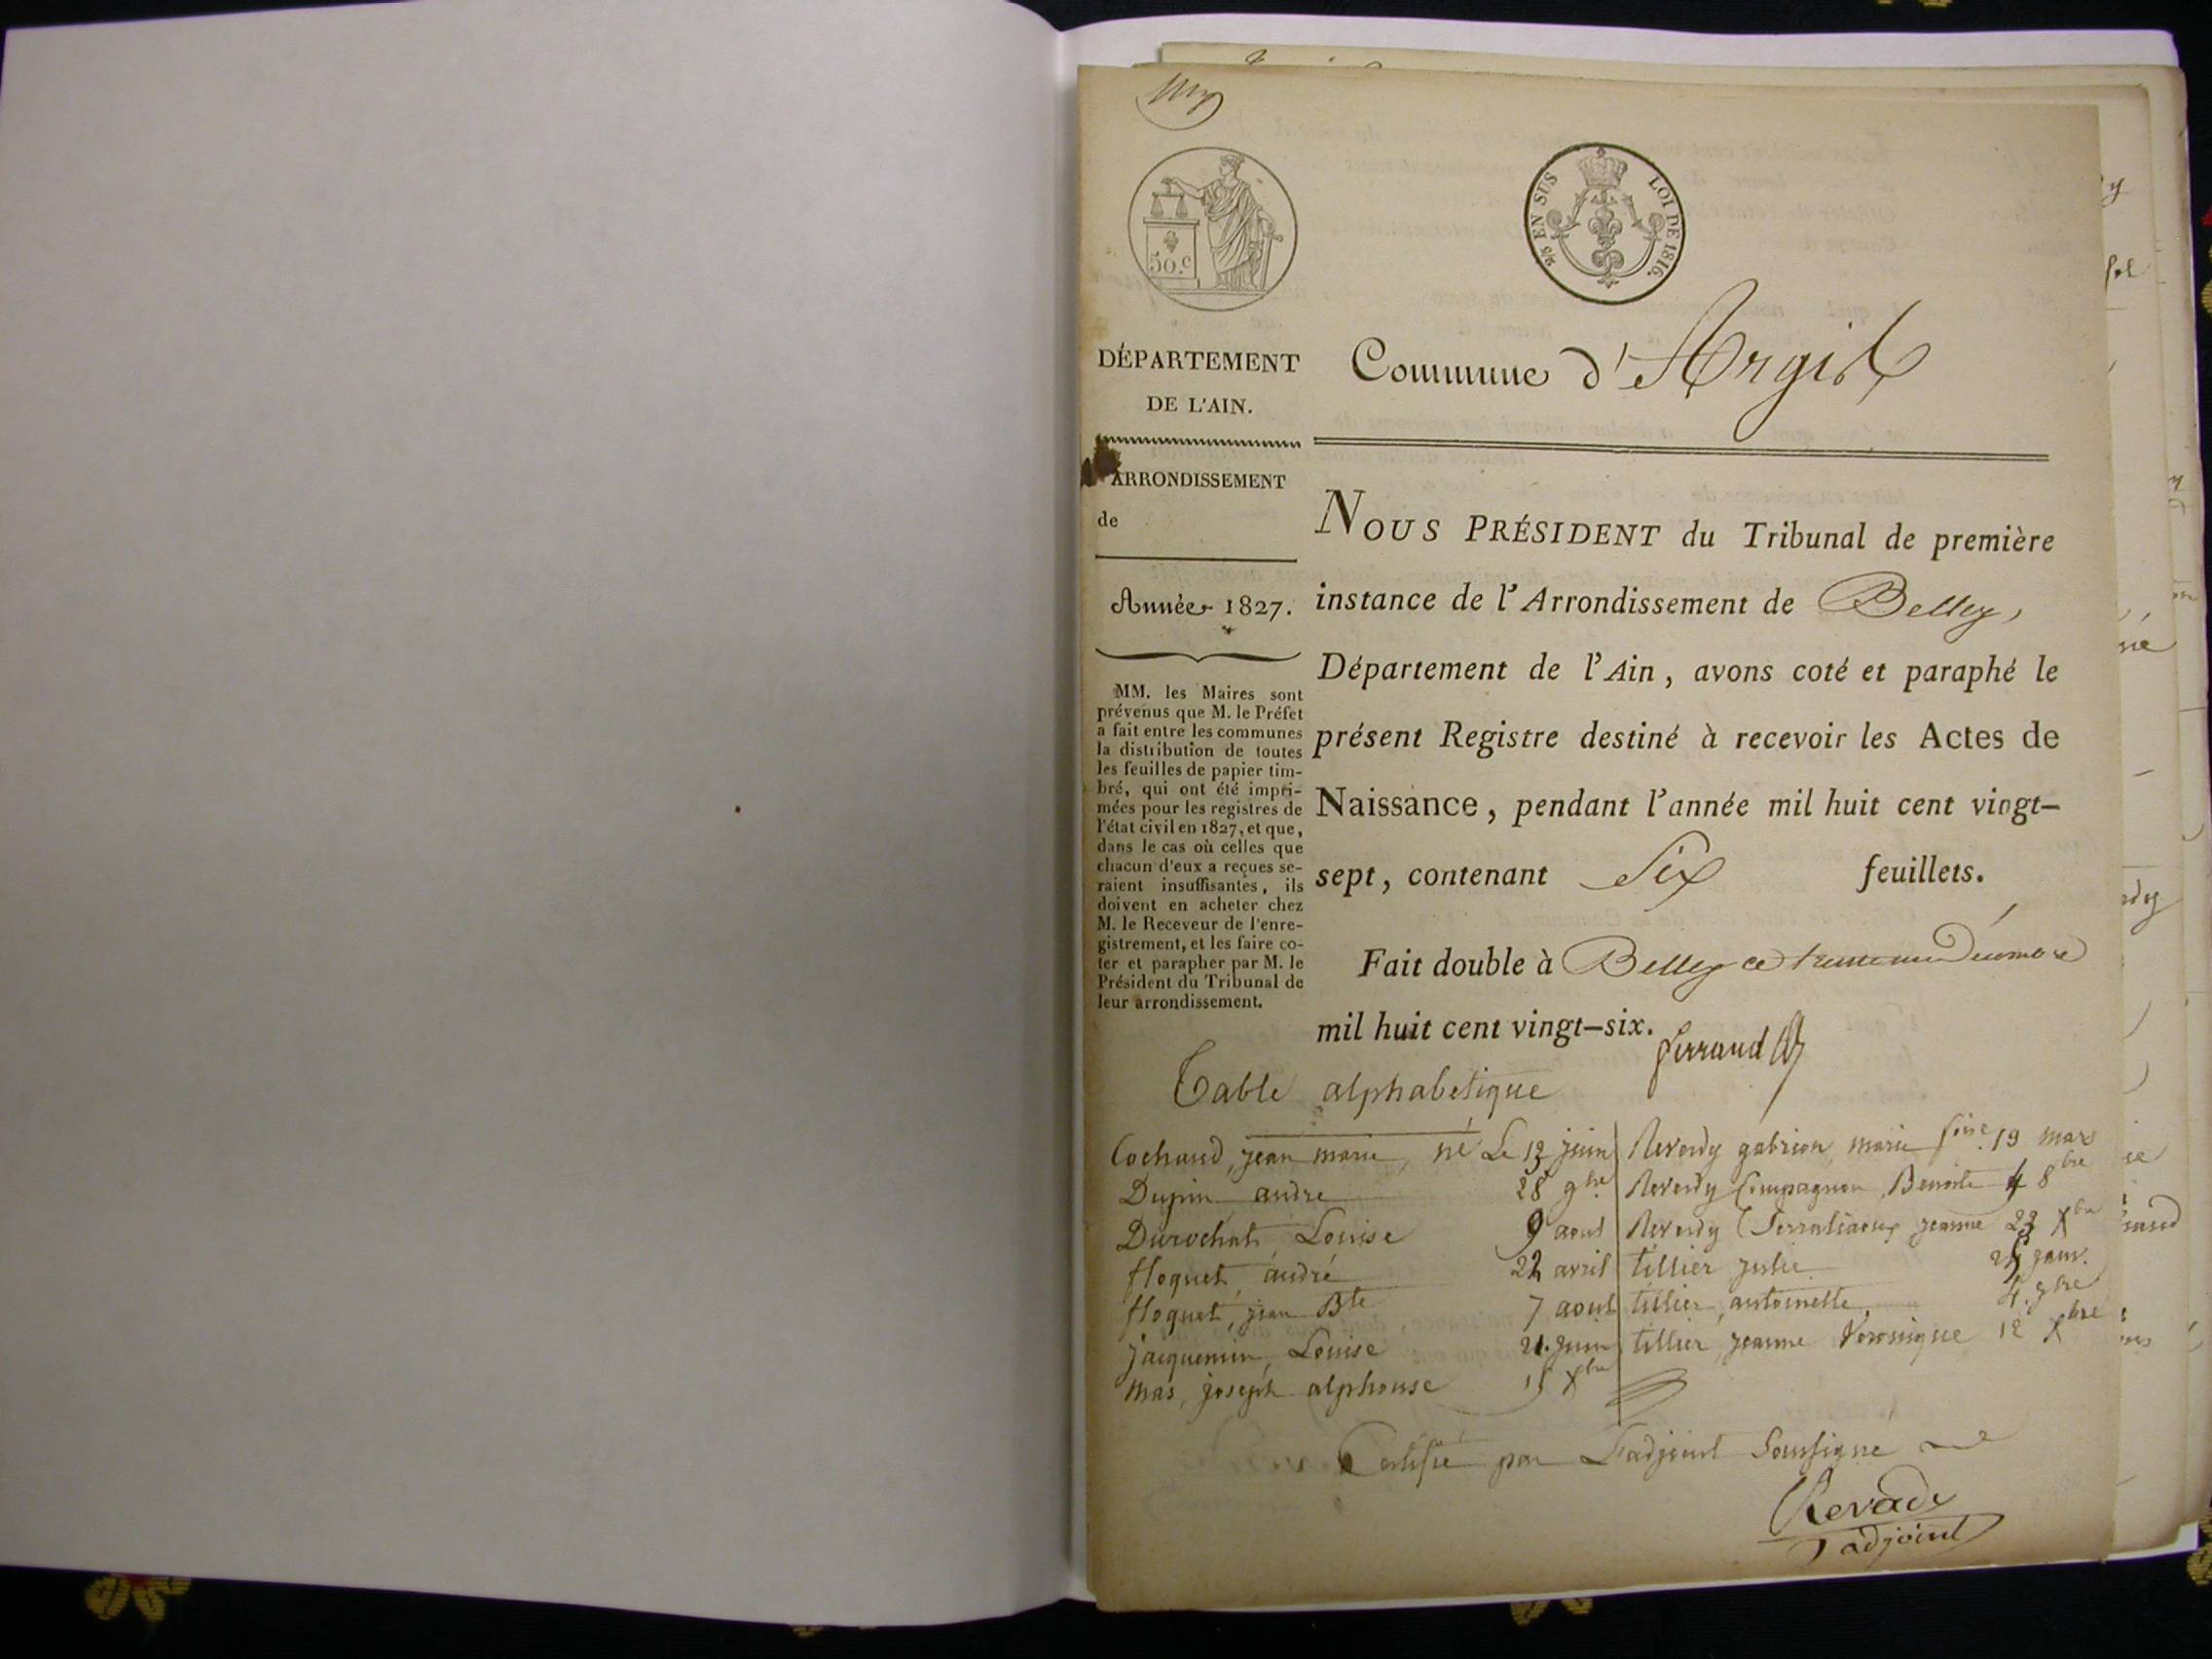 50.c
2/5 EN SUS LOI DE 1816.
DÉPARTEMENT
DE L'AIN.
Commune d'Argis
ARRONDISSEMENT
de
Année 1827.
MM. les Maires sont
prévenus que M. le Préfet
a fait entre les communes
la distribution de toutes
les feuilles de papier tim-
bré, qui ont été impri-
mées pour les registres de
l'état civil en 1827, et que,
dans le cas où celles que
chacun d'eux a reçues se-
raient insuffisantes, ils
doivent en acheter chez
M. le Receveur de l'enre-
gistrement, et les faire co-
ter et parapher par M. le
Président du Tribunal de
leur arrondissement.
NOUS PRÉSIDENT du Tribunal de première
instance de l'Arrondissement de Belley,
Département de l'Ain, avons coté et paraphé le
présent Registre destiné à recevoir les Actes de
Naissance, pendant l'année mil huit cent vingt-
sept, contenant Six feuillets.
Fait double à Belley ce
mil huit cent vingt-six.
Table alphabetique
Cochaud, jean marie, né Le 13 juin
Dupin andre 28 9bre
Durochat, Louise 9 aout
floquet, andré 22 avril
floquet, jean Bte 7 aout
jacquemin, Louise 21. juin
mas, joseph alphonse 15 Xbre
Reverdy gabrion, marie 19 mars
Reverdy Compagnon, Benoite 4 8bre
Reverdy jeanne 23 Xbre
tillier julie janv.
tillier, antoinette, 4. 9bre
tillier, jeanne Veronique 12 Xbre
Certifié par L'adjoint Soussigne
adjoint